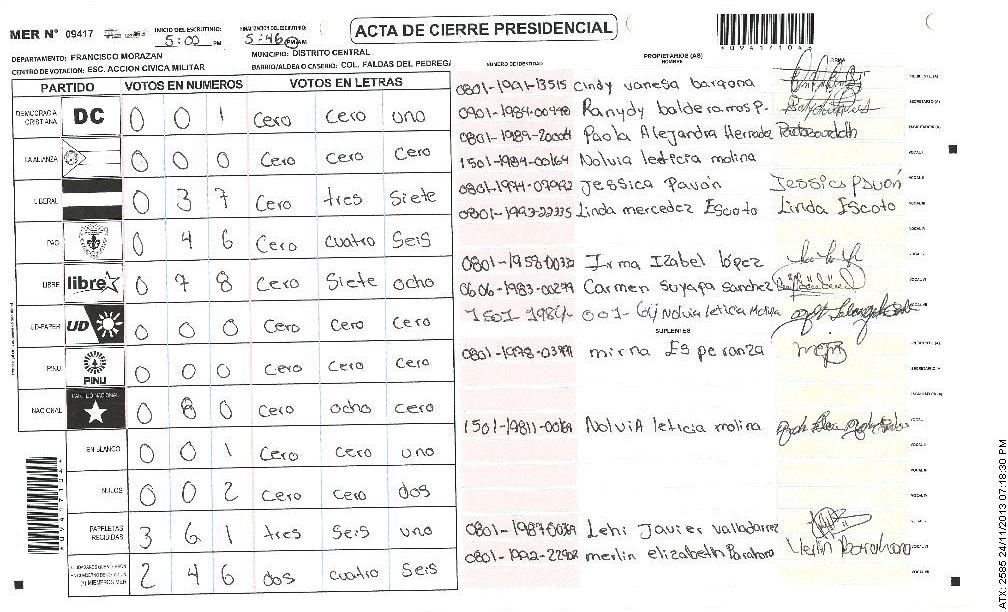 MER N° 09417
INICIO DEL ESCRUTINIO: 5:00 PM
FINALIZACION DEL ESCRUTINIO: 5:46 PM
ACTA DE CIERRE PRESIDENCIAL
*09417104*
DEPARTAMENTO: FRANCISCO MORAZAN
MUNICIPIO: DISTRITO CENTRAL
CENTRO DE VOTACION: ESC. ACCION CIVICA MILITAR
BARRIO/ALDEA O CASERIO: COL. FALDAS DEL PEDREG/
PARTIDO VOTOS EN NUMEROS VOTOS EN LETRAS
DEMOCRACIA CRISTIANA DC 0 0 1 Cero Cero uno
LA ALIANZA 0 0 0 Cero Cero Cero
LIBERAL 0 3 7 Cero tres Siete
PAC 0 4 6 Cero cuatro Seis
LIBRE libre 0 7 8 Cero Siete ocho
UD-FAPER UD 0 0 0 Cero Cero Cero
PINU PINU 0 0 0 Cero Cero Cero
NACIONAL PARTIDO NACIONAL 0 8 0 Cero ocho Cero
EN BLANCO 0 0 1 Cero Cero uno
NULOS 0 0 2 Cero Cero dos
PAPELETAS RECIBIDAS 3 6 1 tres Seis uno
2 4 6 dos cuatro Seis
NUMERO DE IDENTIDAD
PROPIETARIOS (AS)
NOMBRE
FIRMA
0801-1991-13515 Cindy vanesa baraona
0901-1984-00448 Ranydy balderamos P.
0801-1989-20004 Paola Alejandra Herrada
1501-1984-00164 Nolvia leticia molina
0801-1994-07992 Jessica Pavón Jessica pavón
0801-1993-22335 Linda mercedez Escoto Linda Escoto
Irma Izabel lópez
0606-1983-00299 Carmen Suyapa sanchez
Nolvia letica Molina
SUPLENTES
mirna Esperanza
NolviA leticia molina
Lehi Javier valladarez
0801-1992-22908 merlin elizabeth Barahona
ATX: 2585 24/11/2013 07:18:30 PM